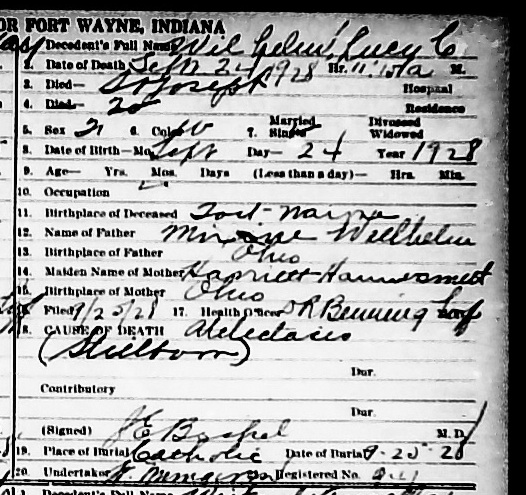 OR FORT WAYNE, INDIANA
Decedent's Full Name Wilhelm Lucy C
1. Date of Death Sept 24 1928 Hr. 11:15 a M.
3. Died— St Joseph Hospital
4. Died— Residence
5. Sex 6. Col W 7. Married Single Divorced Widowed
8. Date of Birth—Mo. Sept Day— 24 Year 1928
9. Age— Yrs. Mos. Days (Less than a day)— Hrs. Min.
10. Occupation
11. Birthplace of Deceased Fort Wayne
12. Name of Father Wilhelm
13. Birthplace of Father Ohio
14. Maiden Name of Mother Harriett
15. Birthplace of Mother Ohio
Filed 9/25/28 17. Health Officer
18. CAUSE OF DEATH Atelectasis
(Stillborn)
Dur.
Contributory
Dur.
(Signed) J E M. D.
19. Place of Burial Catholic Date of Burial 9-25-28
20. Undertaker Registered No.
1. Decedent's Full Name